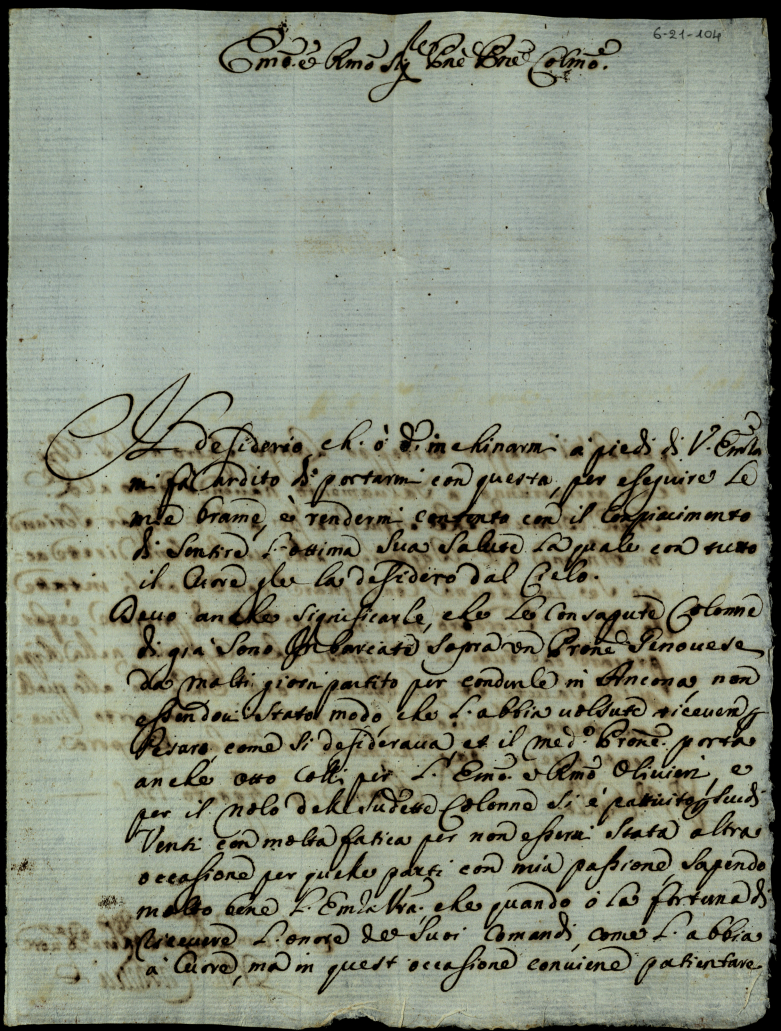 6-21-104
Emo. e Rmo Sig.re Pne Pne Colmo.
Il desiderio, ch. ò d'inchinarmi a piedi di V. Emza
mi fa ardito di portarmi con questa, per eseguire le
mie brame, e rendermi contento con il Compiacimento
di Sentire L'ottima Sua Salute la quale con tutto
il Cuore gle la desidero dal Cielo.
Devo anche significarle, che le Consapute Colonne
di gia Sono Imbarcate sopra un Prone Genovese
da molti giorni partito per condurle in Ancona non
essendovi Stato modo, che L'abbia volsute ricevere p
Pesaro, come Si desiderava, et il med.o Prone. porta
anche otto Colli per L' Emo. e Rmo Olivieri, e
per il nolo delle Sudette Colonne Si è pattuito p Scudi
Venti con molta fatica per non esservi Stata altra
occasione per quelle parti con mia passione, Sapendo
molto bene L' Emza Vra. che quando ò la fortuna di
ricevere L'onore de Suoi Comandi, come L'abbia
à Cuore, ma in quest occasione conviene patientare